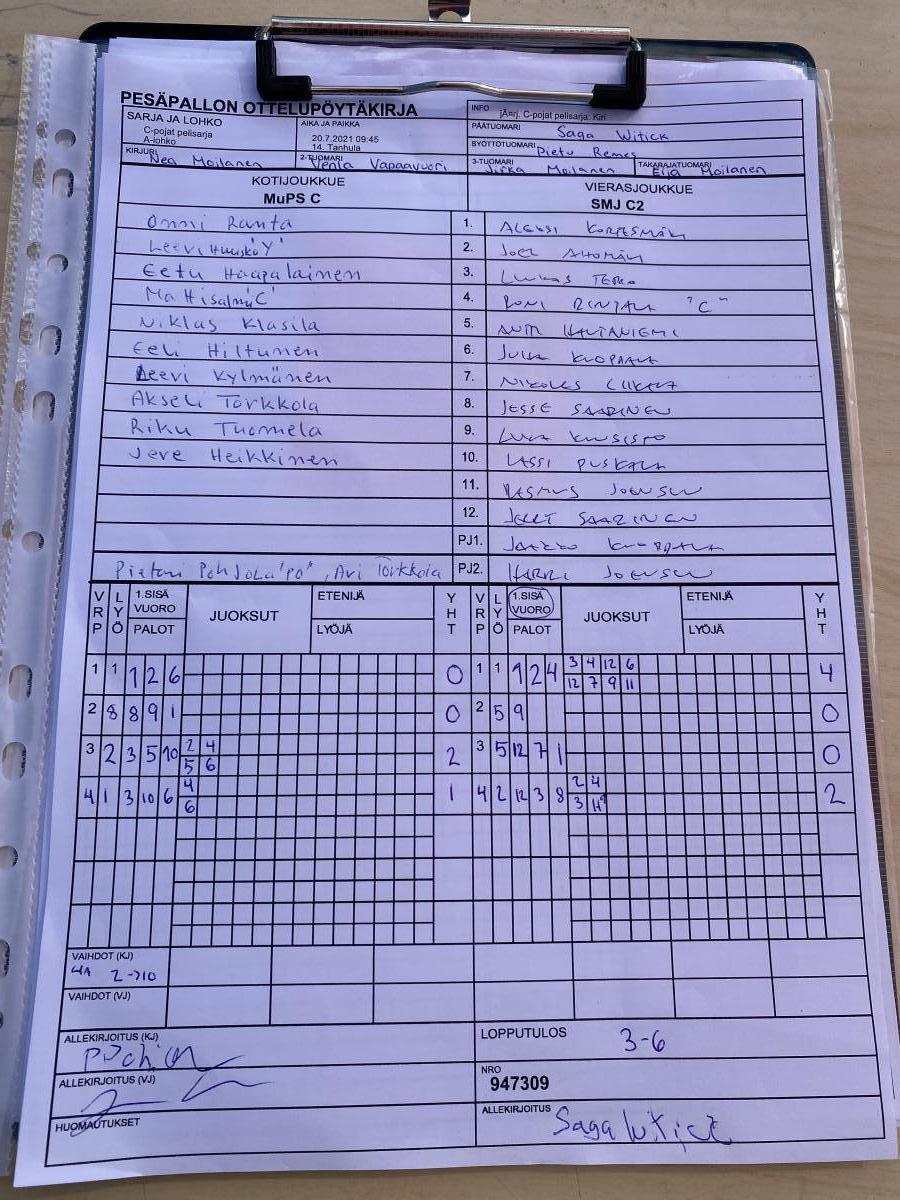 PESÄPALLON OTTELUPÖYTÄKIRJA
INFO
jÃ¤rj. C-pojat pelisarja: Kiri
SARJA JA LOHKO
C-pojat pelisarja
A-lohko
AIKA JA PAIKKA
20.7.2021 09:45
14. Tanhula
PÄÄTUOMARI Saga Witick
SYÖTTÖTUOMARI Pietu Remes
KIRJURI Nea Moilanen
2-TUOMARI Venla Vapaavuori
3-TUOMARI Jirka Moilanen
TAKARAJATUOMARI Eija Moilanen
KOTIJOUKKUE
MuPS C
VIERASJOUKKUE
SMJ C2
Onni Ranta 1. ALEKSI KORPESMÄKI
Leevi 2. JOEL AHOMÄKI
Eetu Haapalainen 3. LUKAS
Matti Salmi "C" 4. RONI RINTALA "C"
Niklas Klasila 5. ANTTI HAUTANIEMI
Eeli Hiltunen 6. JUHA KUOPPALA
Leevi Kylmänen 7. NIKOLAS
Akseli Törkkölä 8. JESSE SAARINEN
Riku Tuomela 9. LUKA KUUSISTO
Jere Heikkinen 10. LASSI PUSKALA
11. RASMUS JOENSUU
12. SAARINEN
PJ1. JAAKKO KUOPPALA
Pietari Pohjola "PO", Ari Törkkölä PJ2. HARRI JOENSUU
VRP LYÖ 1.SISÄ VUORO PALOT JUOKSUT ETENIJÄ LYÖJÄ YHT VRP LYÖ 1.SISÄ VUORO PALOT JUOKSUT ETENIJÄ LYÖJÄ YHT
1 1 1 2 6 0 1 1 1 2 4 3 4 12 6 4
12 7 9 11
2 8 8 9 1 0 2 5 9 0
3 2 3 5 10 2 4 2 3 5 12 7 1 0
5 6
4 1 3 10 6 4 1 4 2 12 3 8 2 4 2
6 3 11
VAIHDOT (KJ)
4A 2->10
VAIHDOT (VJ)
ALLEKIRJOITUS (KJ)
LOPPUTULOS 3-6
ALLEKIRJOITUS (VJ)
NRO
947309
HUOMAUTUKSET
ALLEKIRJOITUS Saga Witick